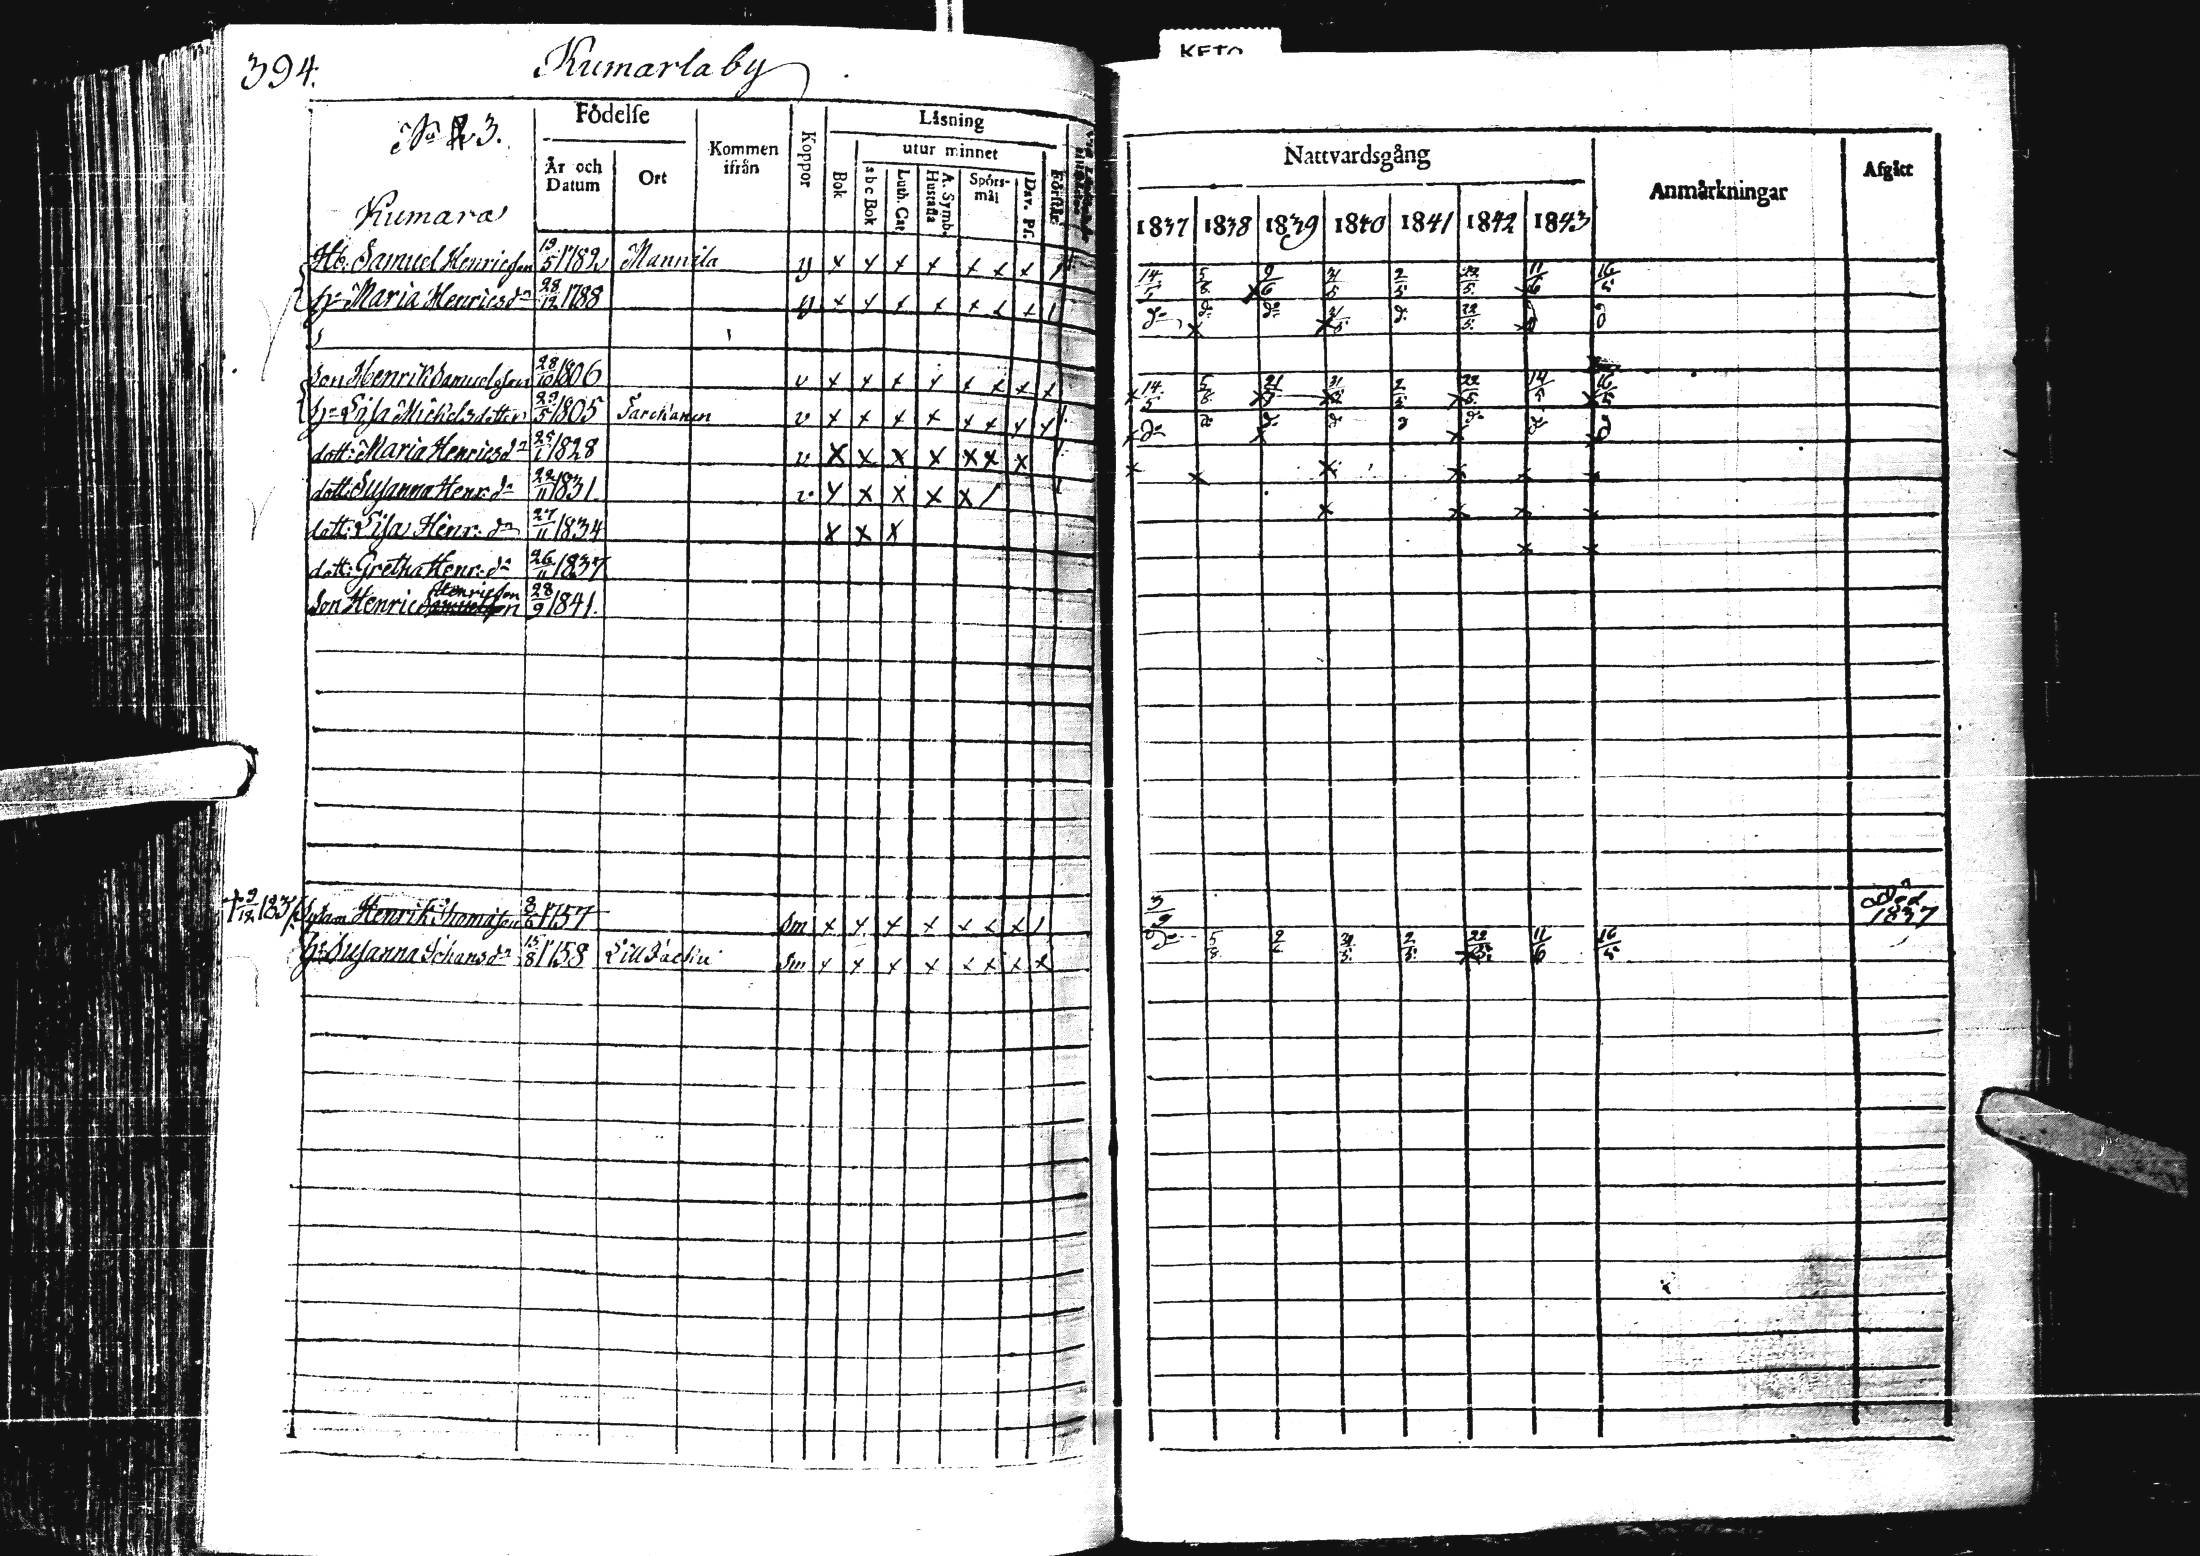 394.
Kumarla by
KETO
No 3.
Födelse
År och Datum
Ort
Kommen ifrån
Koppor
Läsning
utur minnet
Bok
a b c Bok
Luth. Cat.
A. Symb. Hustafla
Spörs-mål
Dav. Ps.
Förstår
Nattvardsgång
1837 1838 1839 1840 1841 1842 1843
Anmärkningar
Afgått
Kumara
Hb: Samuel Henricsson 19/5 1782 Mannila y x x x x x x x 14/5 5/8 9/6 31/5 2/5 22/5 11/6 16/5
h: Maria Henricsdr 28/12 1788 y x x x x x x x do do do 31/5 do 22/5
Son Henrik Samuelsson 28/10 1806 v x x x x x x x x 14/5 5/8 2/5 22/5 14/5 16/5
h: Lisa Michelsdotter 23/5 1805 v x x x x x x x x do do do do do
dott: Maria Henricsdr 25/1 1828 v x x x x x x x
dott: Susanna Henr: dr 22/11 1831. v x x x x x
dott: Lisa Henr: dr 27/11 1834 x x x
dott: Gretha Henr: dr 26/11 1837
Son Henric Henricsson 28/9 1841.
† 9/12 1837 Henrik Thomasson 8/6 1757 Sm x x x x x x x 3/9 död 1837
h: Susanna Johansdr 15/8 1758 Sm x x x x x x x x do 5/8 2/6 31/5 2/5 22/5 11/6 16/5